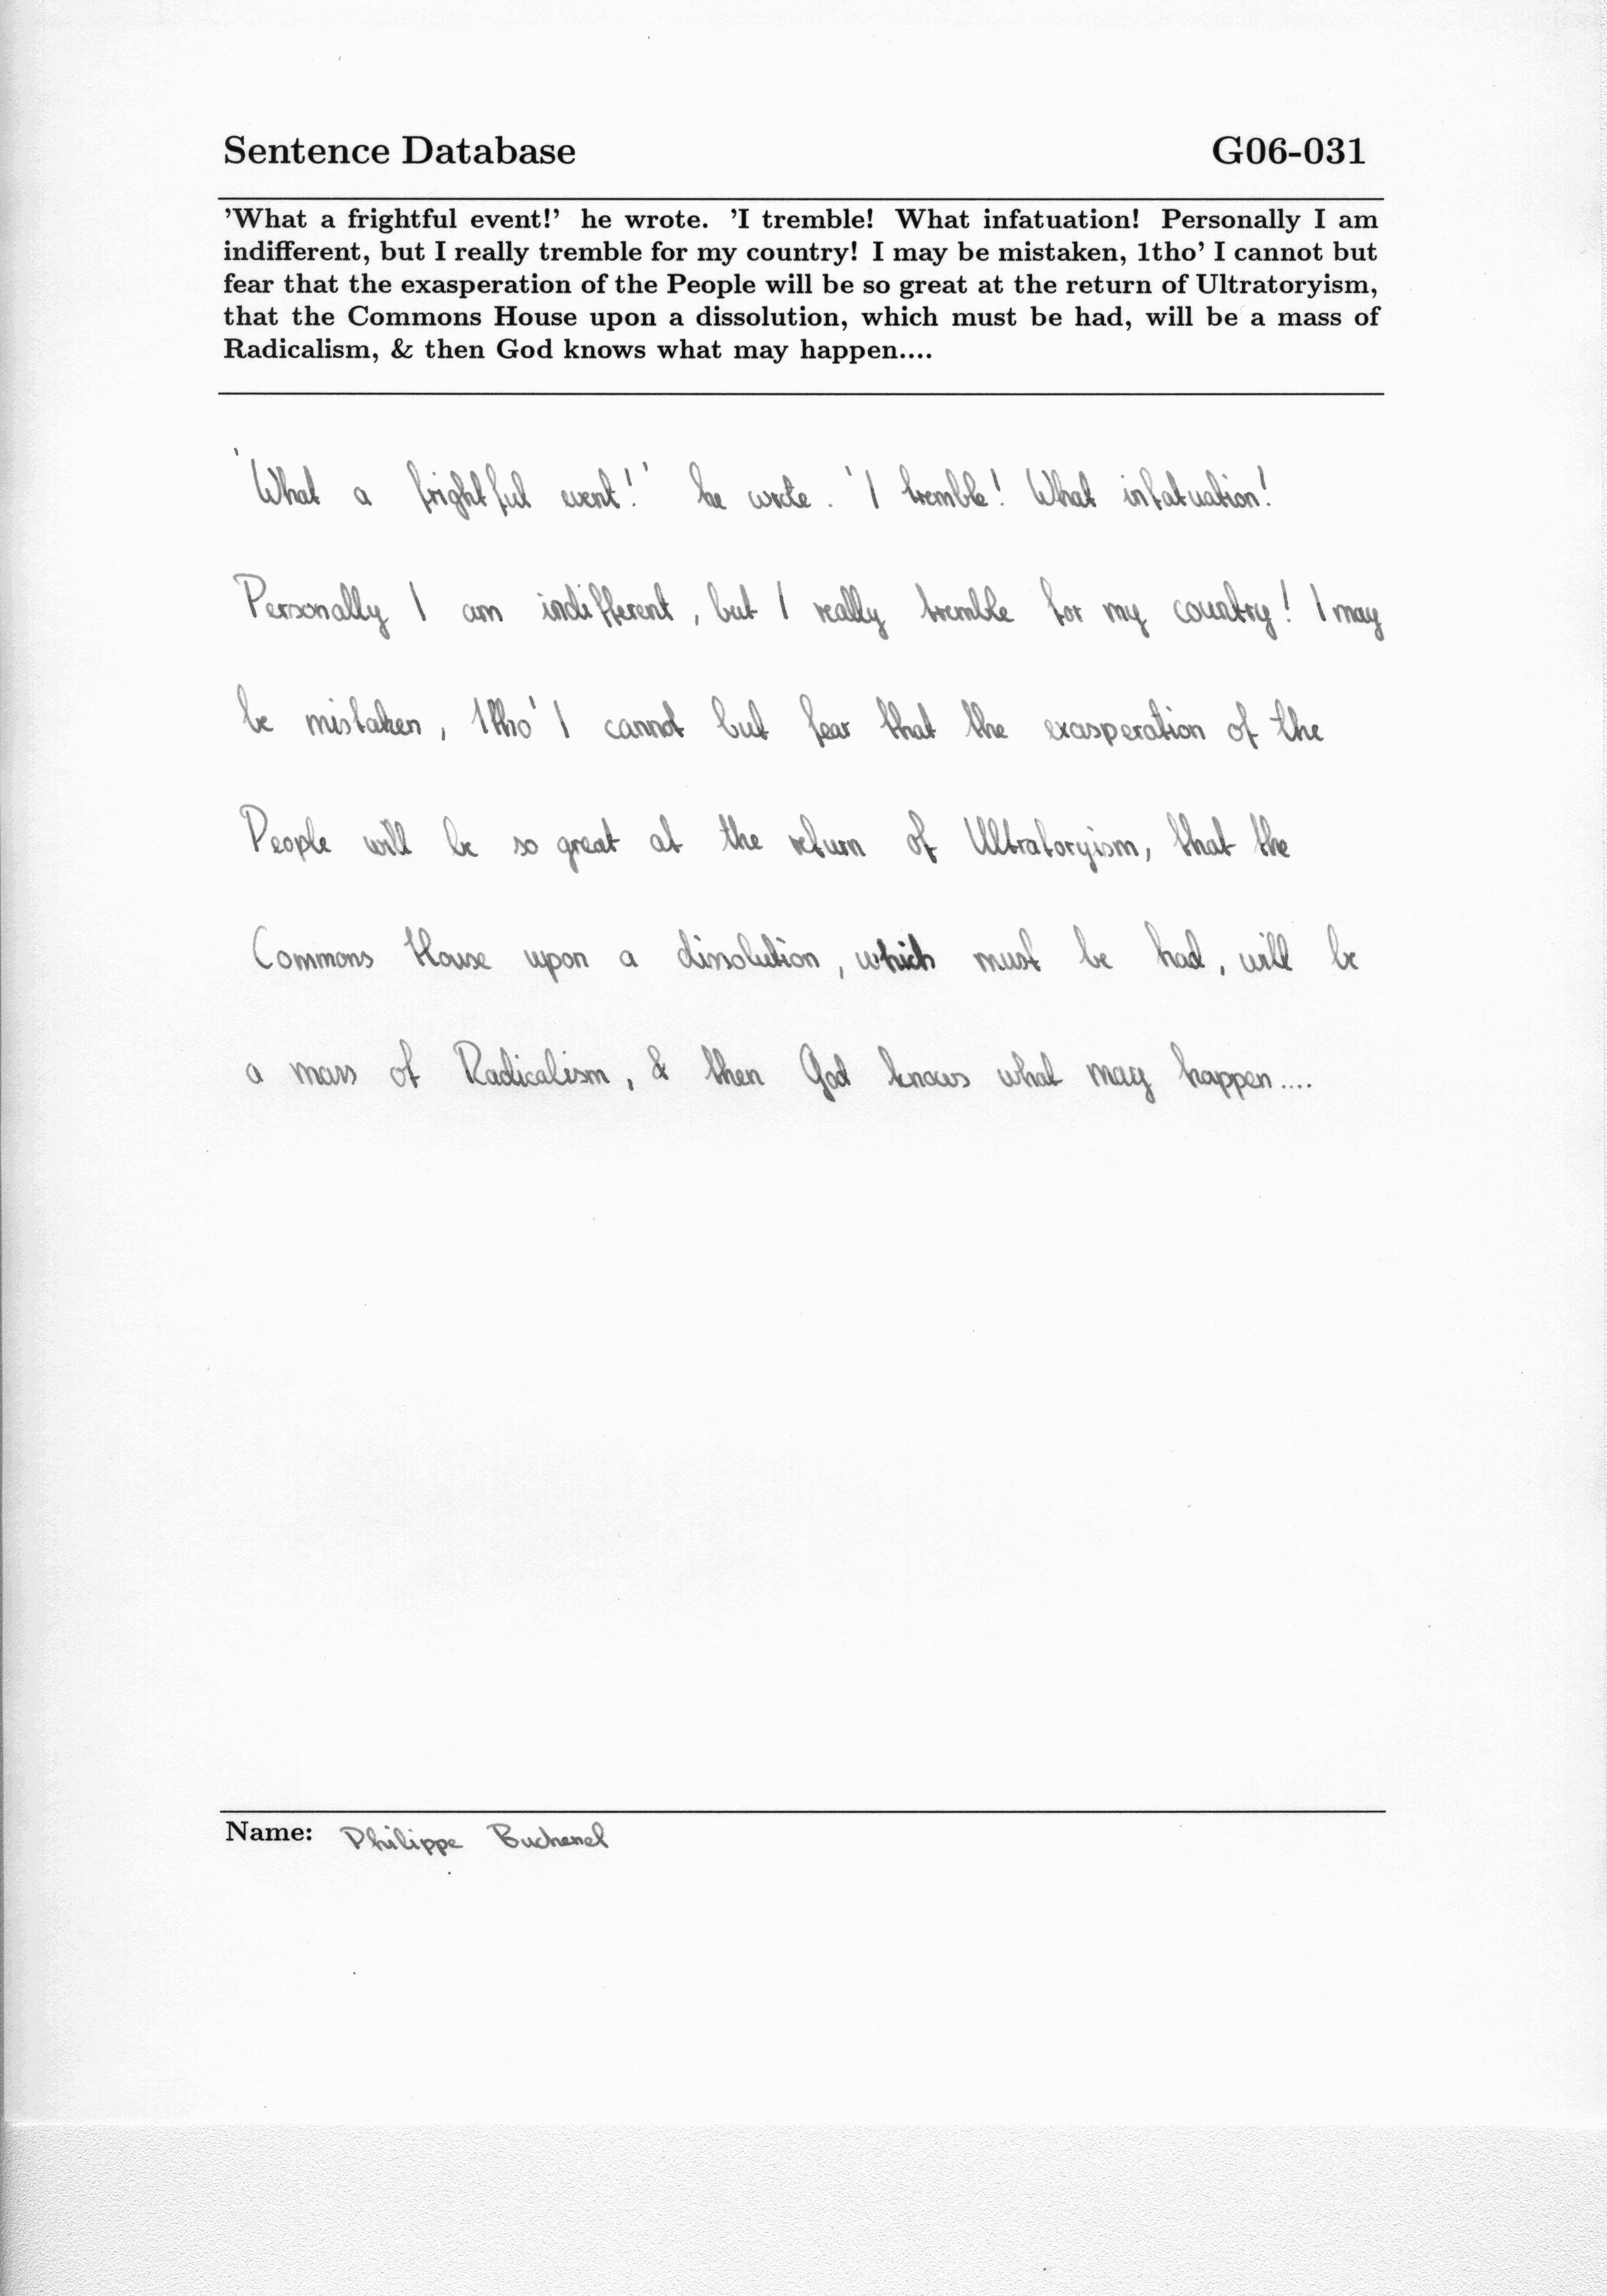 Sentence Database G06-031
'What a frightful event!' he wrote. 'I tremble! What infatuation! Personally I am
indifferent, but I really tremble for my country! I may be mistaken, 1tho' I cannot but
fear that the exasperation of the People will be so great at the return of Ultratoryism,
that the Commons House upon a dissolution, which must be had, will be a mass of
Radicalism, & then God knows what may happen....
'What a frightful event!' he wrote. 'I tremble! What infatuation!
Personally I am indifferent, but I really tremble for my country! I may
be mistaken, 1tho' I cannot but fear that the exasperation of the
People will be so great at the return of Ultratoryism, that the
Commons House upon a dissolution, which must be had, will be
a mass of Radicalism, & then God knows what may happen....
Name: Philippe Buchenel